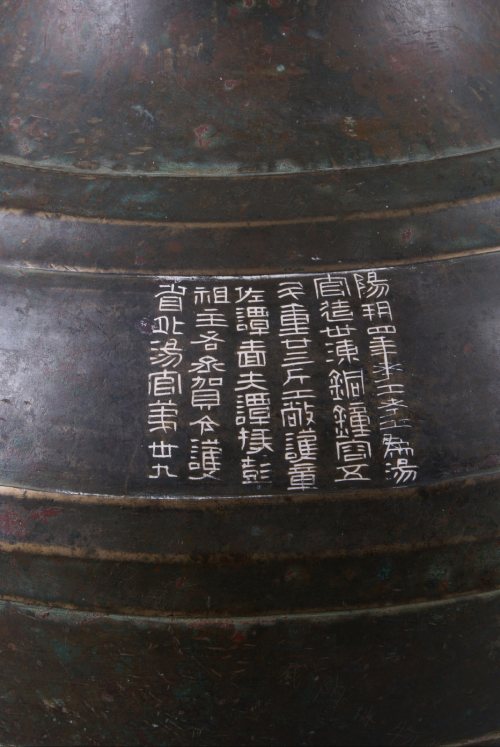 陽朔四年考工為湯
官造卅湅銅鍾容五
斗重廿三斤護章
佐譚嗇夫譚掾彭
祖主右丞賀令護
省北湯官第卅九